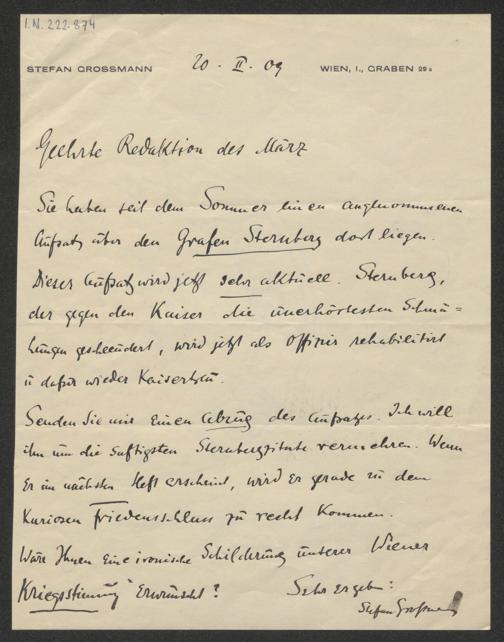 I.N. 222.874
STEFAN GROSSMANN 20. II. 09 WIEN, I., GRABEN 29a
Geehrte Redaktion des März
Sie haben seit dem Sommer einen angenommenen
Aufsatz über den Grafen Sternberg dort liegen.
Dieser Aufsatz wird jetzt sehr aktuell. Sternberg,
der gegen den Kaiser die unerhörtesten Schmä=
hungen geschleudert, wird jetzt als Offizir rehabilitirt
u dafür wieder Kaisertreu.
Senden Sie mir einen Abzug des Aufsatzes. Ich will
ihn um die saftigsten Sternbergzitate vermehren. Wenn
Er im nächsten Heft erscheint, wird Er gerade zu dem
Kuriosen Friedensschluss zu recht kommen.
Wäre Ihnen eine ironische Schilderung unserer Wiener
Kriegsstimmung Erwünscht? Sehr ergeben:
Stefan Grossmann